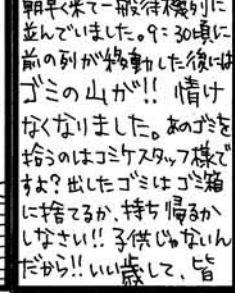 朝早く来て一般待機列に
並んでいました。9:30頃に
前の列が移動した後には
ゴミの山が!! 情け
なくなりました。あのゴミを
拾うのはコミケスタッフ様で
すよ?出したゴミはゴミ箱
に捨てるか、持ち帰るか
しなさい!!子供じゃないん
だから!!いい歳して、皆